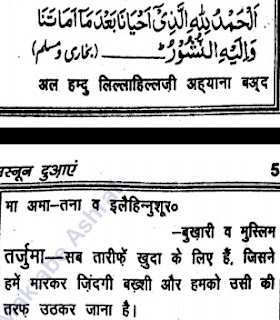 اَلْحَمْدُ لِلّٰهِ الَّذِیْ اَحْیَانَا بَعْدَ مَا اَمَاتَنَا
وَاِلَیْهِ النُّشُوْرُ (بخاری و مسلم)
अल हम्दु लिल्लाहिल्लजी अह्याना बअ्द
मस्नून दुआएं 5
मा अमा-तना व इलैहिन्नुशूर०
-बुख़ारी व मुस्लिम
तर्जुमा—सब तारीफ़ें ख़ुदा के लिए हैं, जिसने
हमें मारकर ज़िंदगी बख़्शी और हमको उसी की
तरफ़ उठकर जाना है।